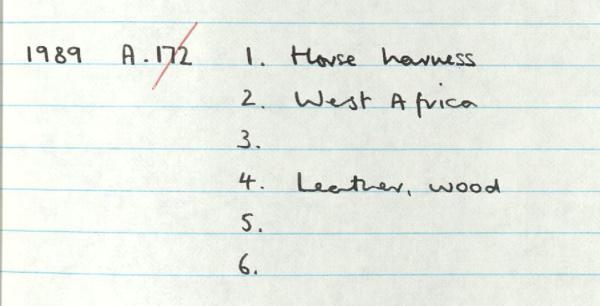 1989 A.172 1. Horse harness
2. West Africa
3.
4. Leather, wood
5.
6.